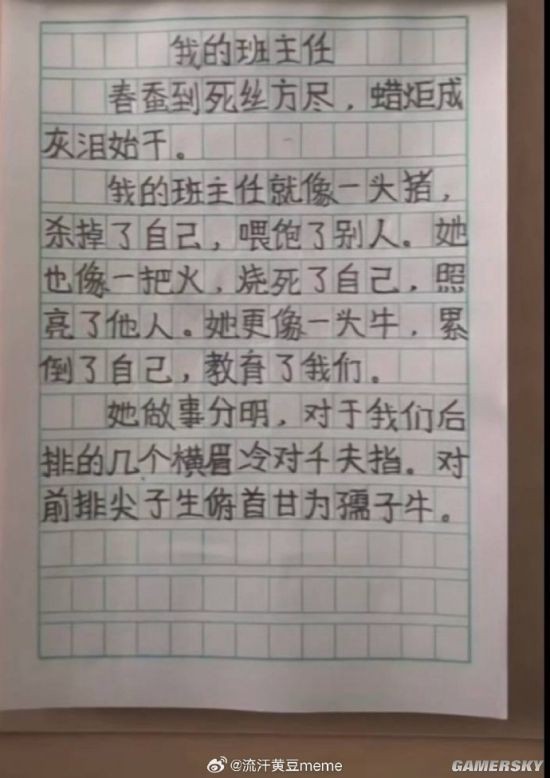 我的班主任
春蚕到死丝方尽，蜡炬成
灰泪始干。
我的班主任就像一头猪，
杀掉了自己，喂饱了别人。她
也像一把火，烧死了自己，照
亮了他人。她更像一头牛，累
倒了自己，教育了我们。
她做事分明，对于我们后
排的几个横眉冷对千夫指。对
前排尖子生俯首甘为孺子牛。
@流汗黄豆meme
GAMERSKY